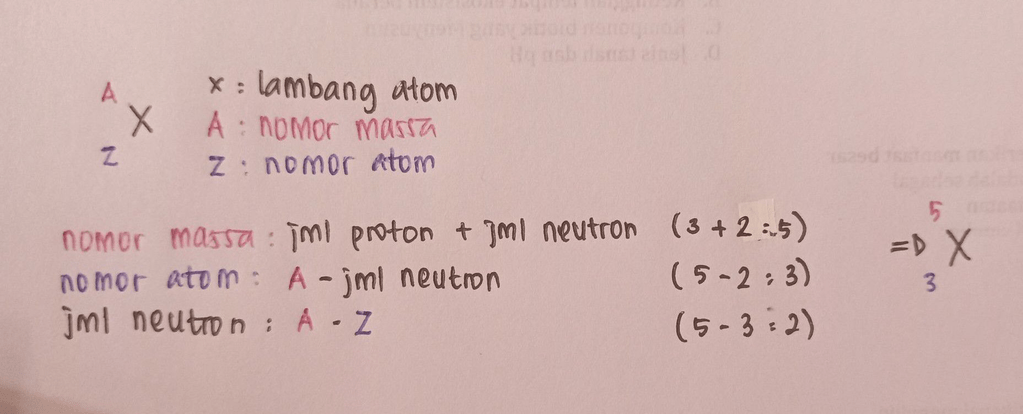 A
X
Z
x : lambang atom
A : nomor massa
Z : nomor atom
nomor massa : jml proton + jml neutron (3 + 2 : 5)
nomor atom : A - jml neutron (5 - 2 : 3)
jml neutron : A - Z (5 - 3 : 2)
5
=D X
3